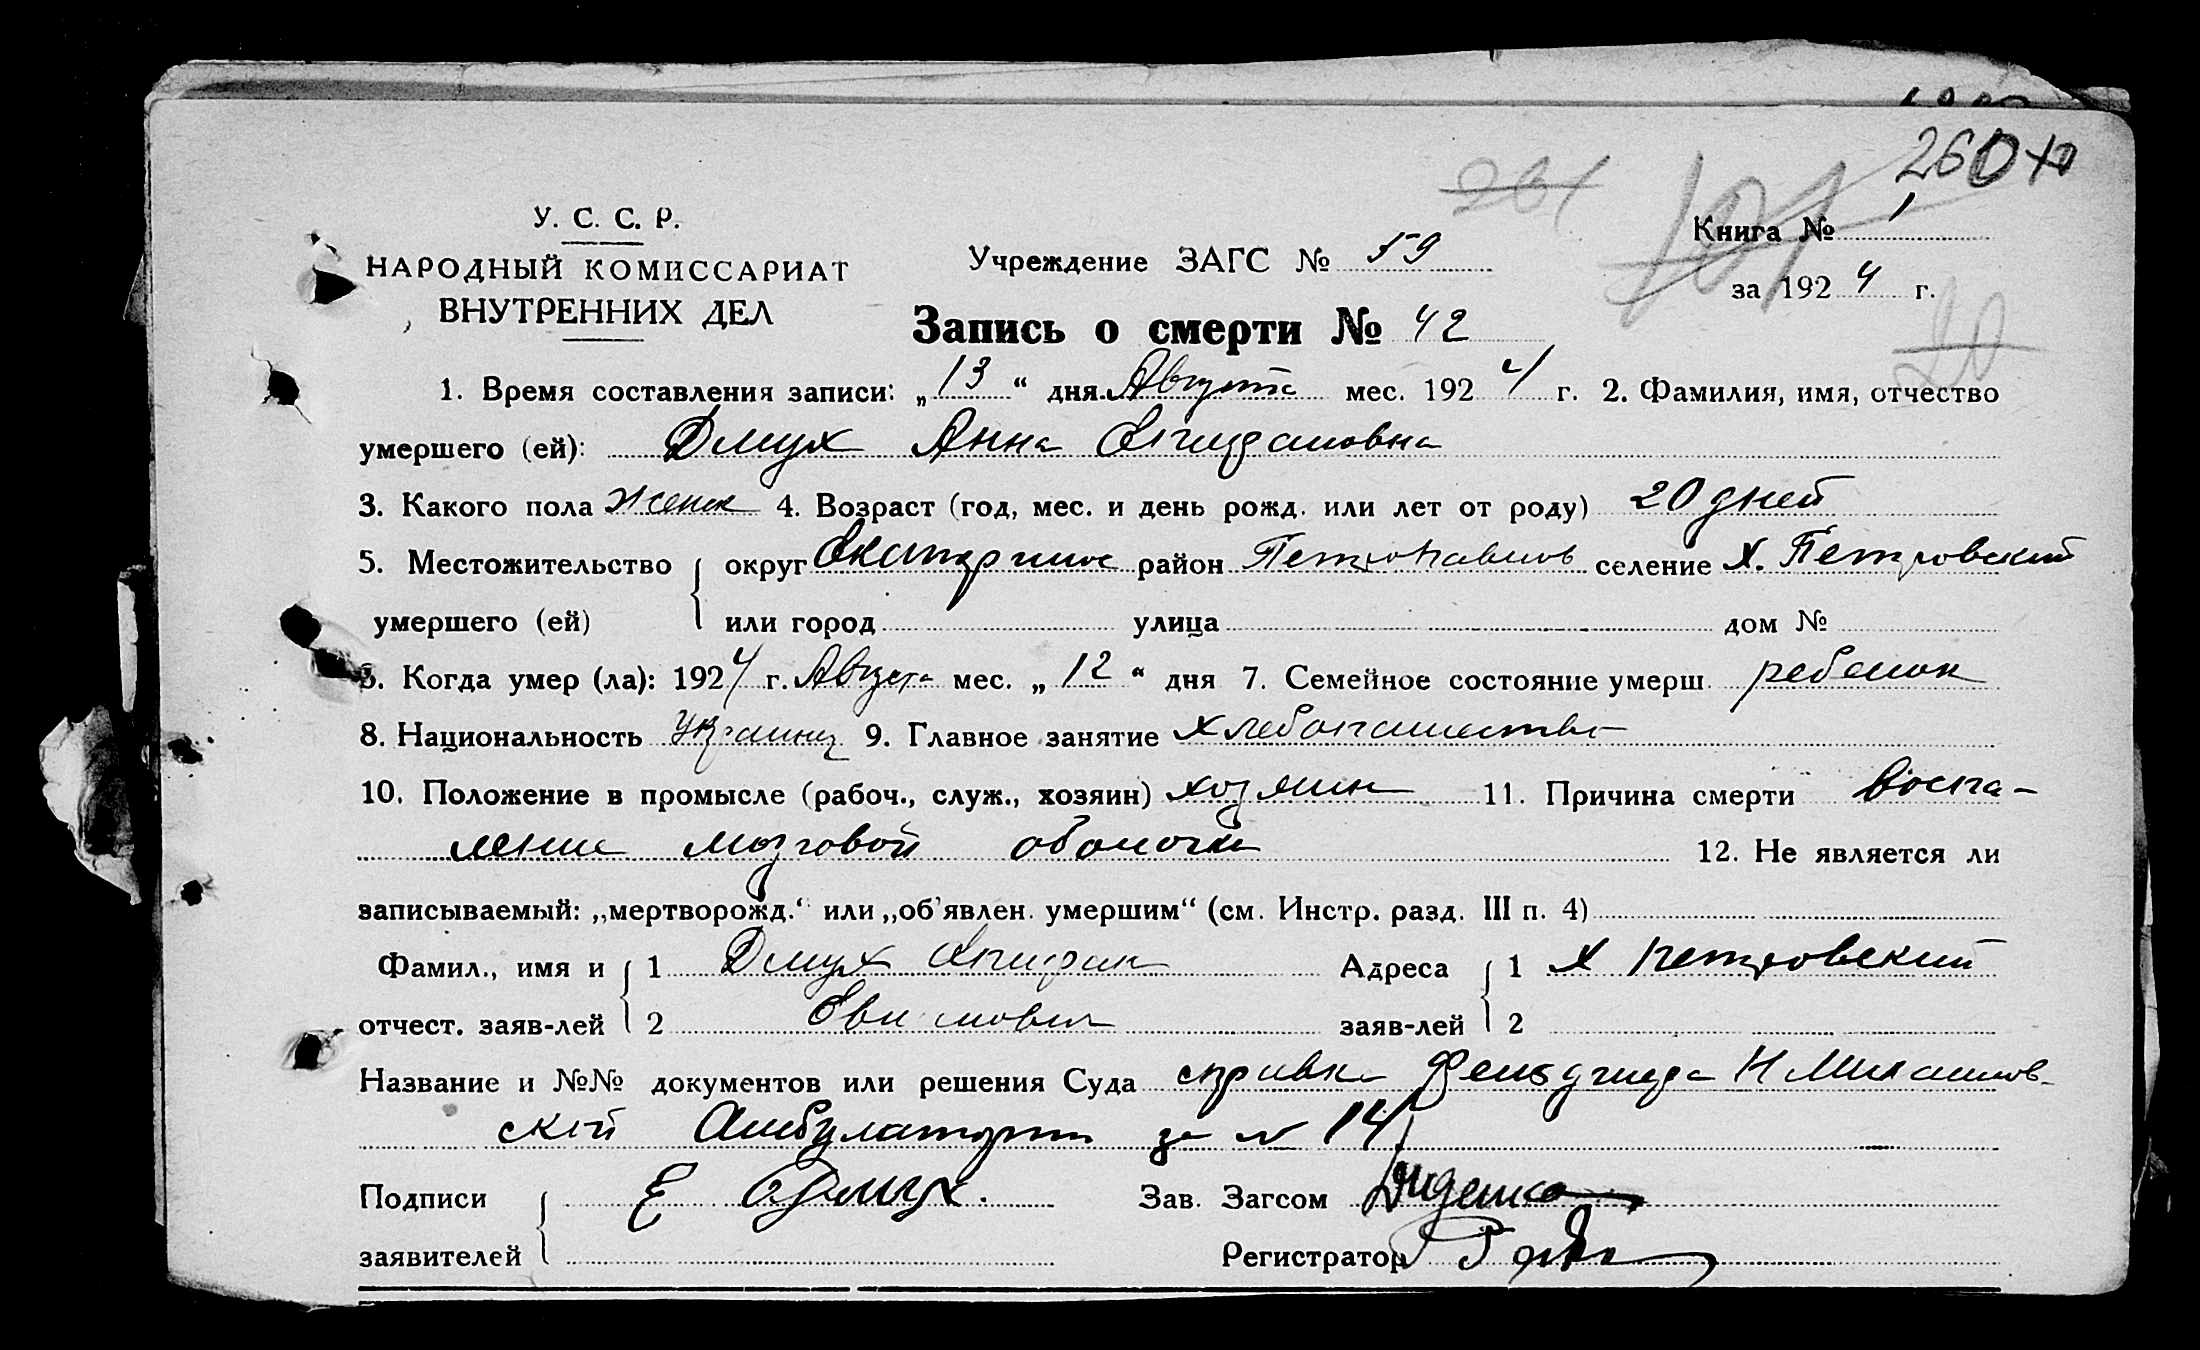 260
261
101
У. С. С. Р.
НАРОДНЫЙ КОМИССАРИАТ
ВНУТРЕННИХ ДЕЛ
Учреждение ЗАГС № 59
Книга № 1
за 1924 г.
20
Запись о смерти № 42
1. Время составления записи: „13“ дня Августа мес. 1924 г. 2. Фамилия, имя, отчество
умершего (ей): Дмух Анна
3. Какого пола женск 4. Возраст (год, мес. и день рожд. или лет от роду) 20 дней
5. Местожительство округ Екатеринос район Петропавлов селение х. Петровский
умершего (ей) или город улица дом №
6. Когда умер (ла): 1924 г. Августа мес. „12“ дня 7. Семейное состояние умерш. ребенок
8. Национальность Украинц 9. Главное занятие Хлебопашество
10. Положение в промысле (рабоч., служ., хозяин) хозяин 11. Причина смерти Воспа-
ление мозговой оболочки 12. Не является ли
записываемый: „мертворожд.“ или „об'явлен. умершим“ (см. Инстр. разд. III п. 4)
Фамил., имя и 1 Дмух Адреса 1 х Петровский
отчест. заяв-лей 2 заяв-лей 2
Название и №№ документов или решения Суда справка Фельдшера Н Михайлов-
ской Амбулатории за № 14
Подписи Е Дмух. Зав. Загсом Диденко
заявителей Регистратор